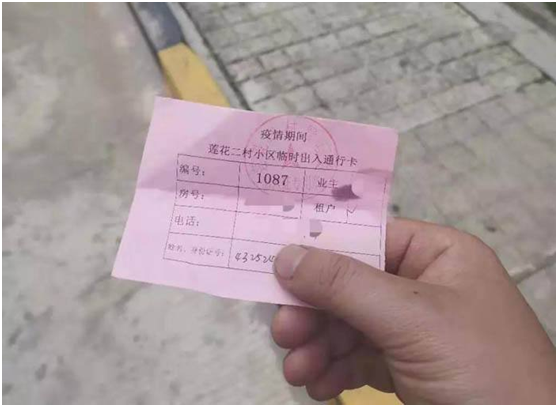 疫情期间
莲花二村小区临时出入通行卡
编号： 1087 业主
房号： 租户 ✓
电话：
姓名、身份证号： 432524